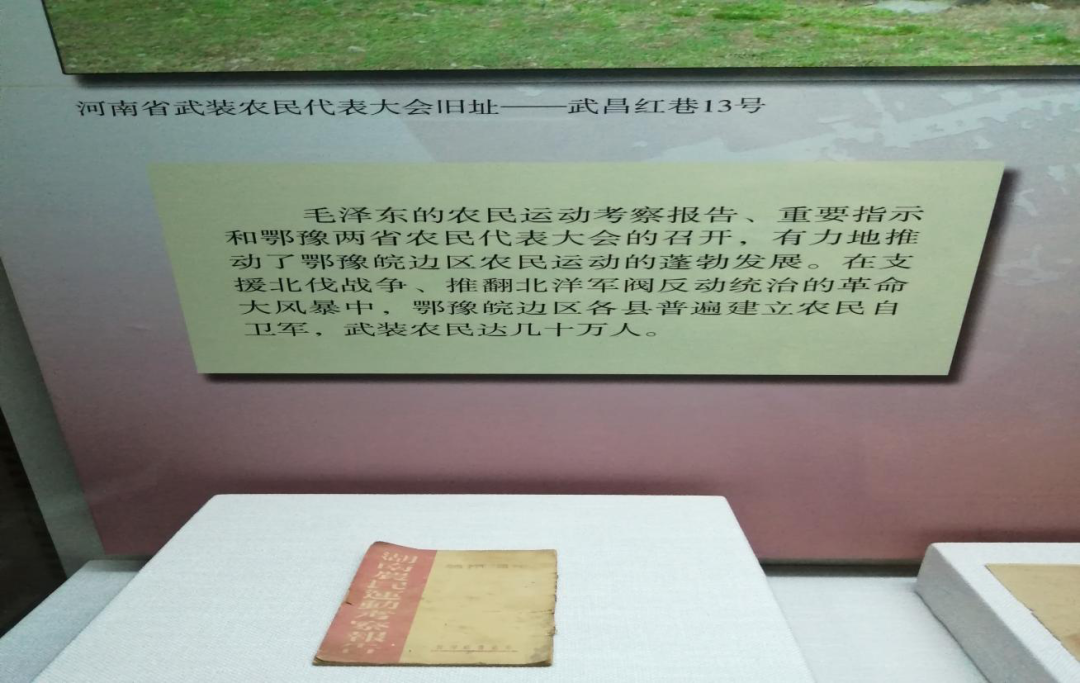 河南省武装农民代表大会旧址——武昌红巷13号
毛泽东的农民运动考察报告、重要指示
和鄂豫两省农民代表大会的召开，有力地推
动了鄂豫皖边区农民运动的蓬勃发展。在支
援北伐战争、推翻北洋军阀反动统治的革命
大风暴中，鄂豫皖边区各县普遍建立农民自
卫军，武装农民达几十万人。
湖南農民運動考察報告